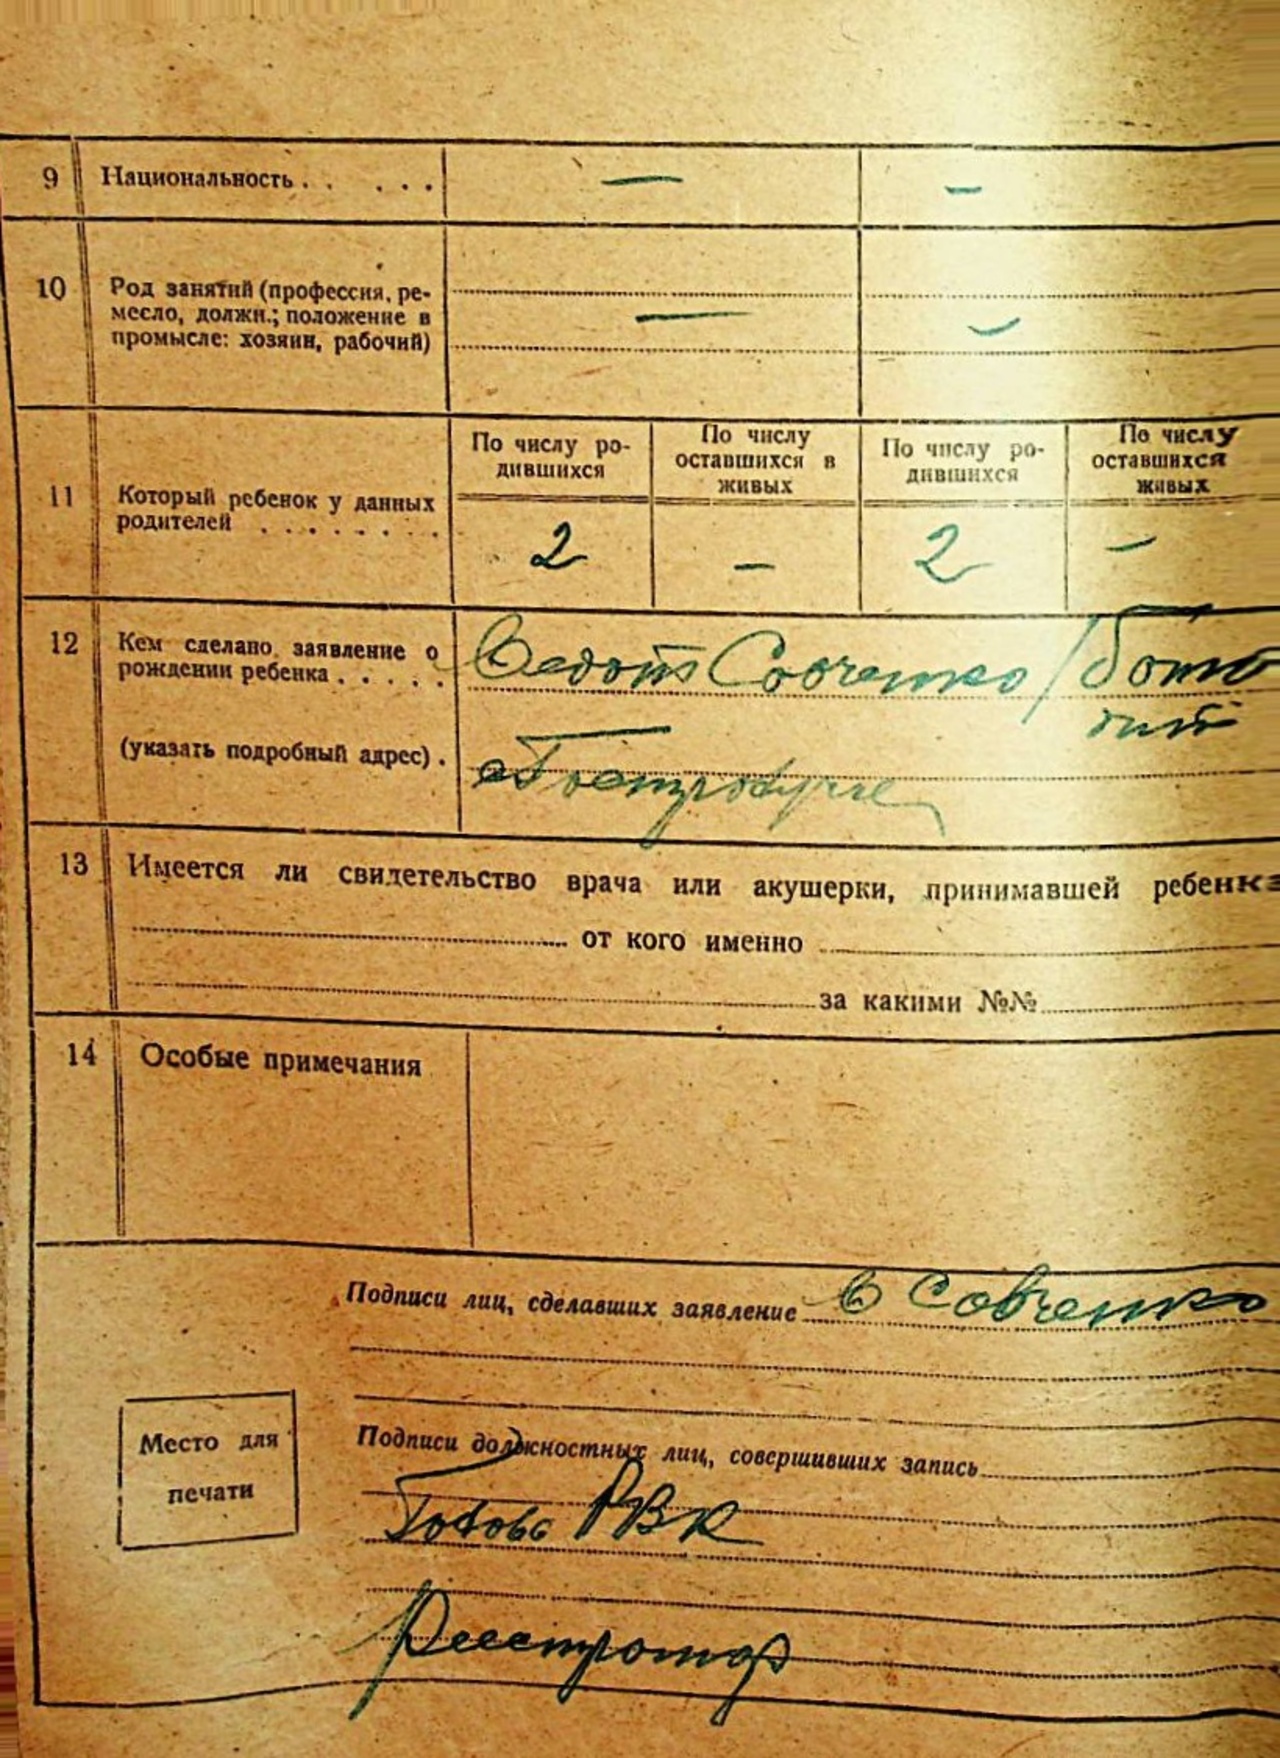 9 Национальность . . . . . — —
10 Род занятий (профессия, ре-
месло, должн.; положение в — —
промысле: хозяин, рабочий)
По числу ро-
дившихся
По числу
оставшихся в
живых
По числу ро-
дившихся
По числу
оставшихся
живых
11 Который ребенок у данных
родителей . . . . . . . 2 — 2 —
12 Кем сделано заявление о
рождении ребенка . . . . . Савченко
(указать подробный адрес) .
13 Имеется ли свидетельство врача или акушерки, принимавшей ребенка
от кого именно
за какими №№
14 Особые примечания
Подписи лиц, сделавших заявление Савченко
Место для
печати
Подписи должностных лиц, совершивших запись
Голова РВК
Реестратор